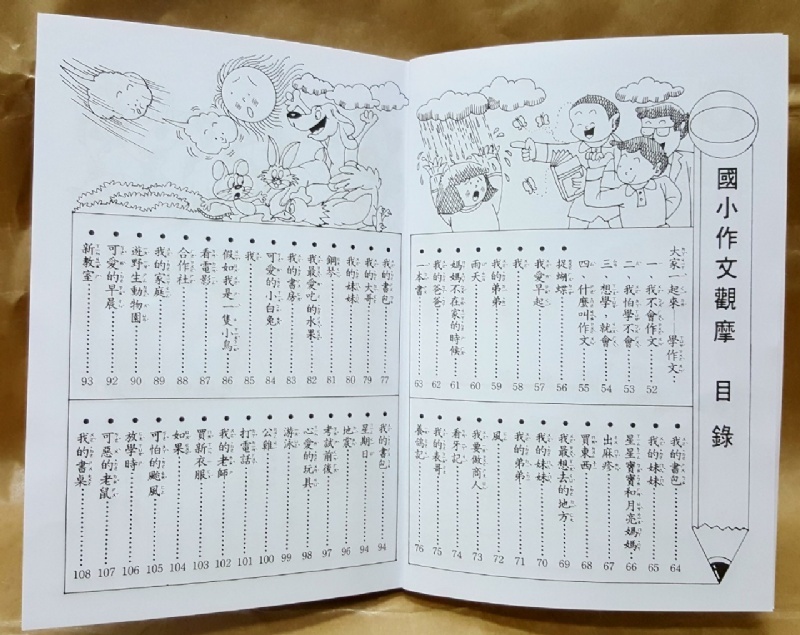 國小作文觀摩 目錄
大家一起來——學作文
一、我不會作文……52
二、我怕學不會……53
三、想學，就會……54
四、什麼叫作文……55
捉蝴蝶……56
我愛早起……57
我……58
我的弟弟……59
雨天……60
媽媽不在家的時候……61
我的爸爸……62
一本書……63
我的書包……64
我的妹妹……65
星星寶寶和月亮媽媽……66
出麻疹……67
買東西……68
我最想去的地方……69
我的妹妹……70
我的弟弟……71
風……72
我要做商人……73
看牙記……74
我的表哥……75
養鴿記……76
我的書包……77
我的大哥……79
我的妹妹……80
鋼琴……81
我最愛吃的水果……82
我的書房……83
可愛的小白兔……84
我……85
假如我是一隻小鳥……86
看電影……87
合作社……88
我的家庭……89
遊野生動物園……90
可愛的早晨……92
新教室……93
我的書包……94
星期日……94
地震……96
考試前後……97
心愛的玩具……98
游泳……99
公雞……100
打電話……101
我的老師……102
買新衣服……103
如果……104
可怕的颱風……105
放學時……106
可惡的老鼠……107
我的書桌……108